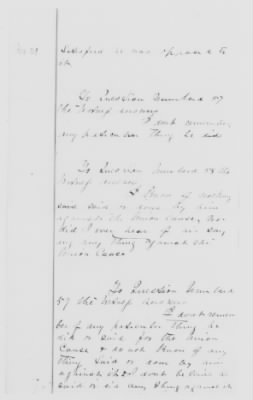 satisfied he was opposed to
it
To Question Number 57
the Witness answers
I dont remember
any particular thing he did
To Question Number 58 the
Witness answers
I know of nothing
said or done by him
against the Union Cause, nor
did I ever hear of his say
ing any thing against the
Union Cause
To Question Number
59 the Witness answers
I dont remem
ber if any particular thing he
did or said for the Union
Cause & do not know of any
thing said or done by him
against it & I dont believe he
said or did any thing against it